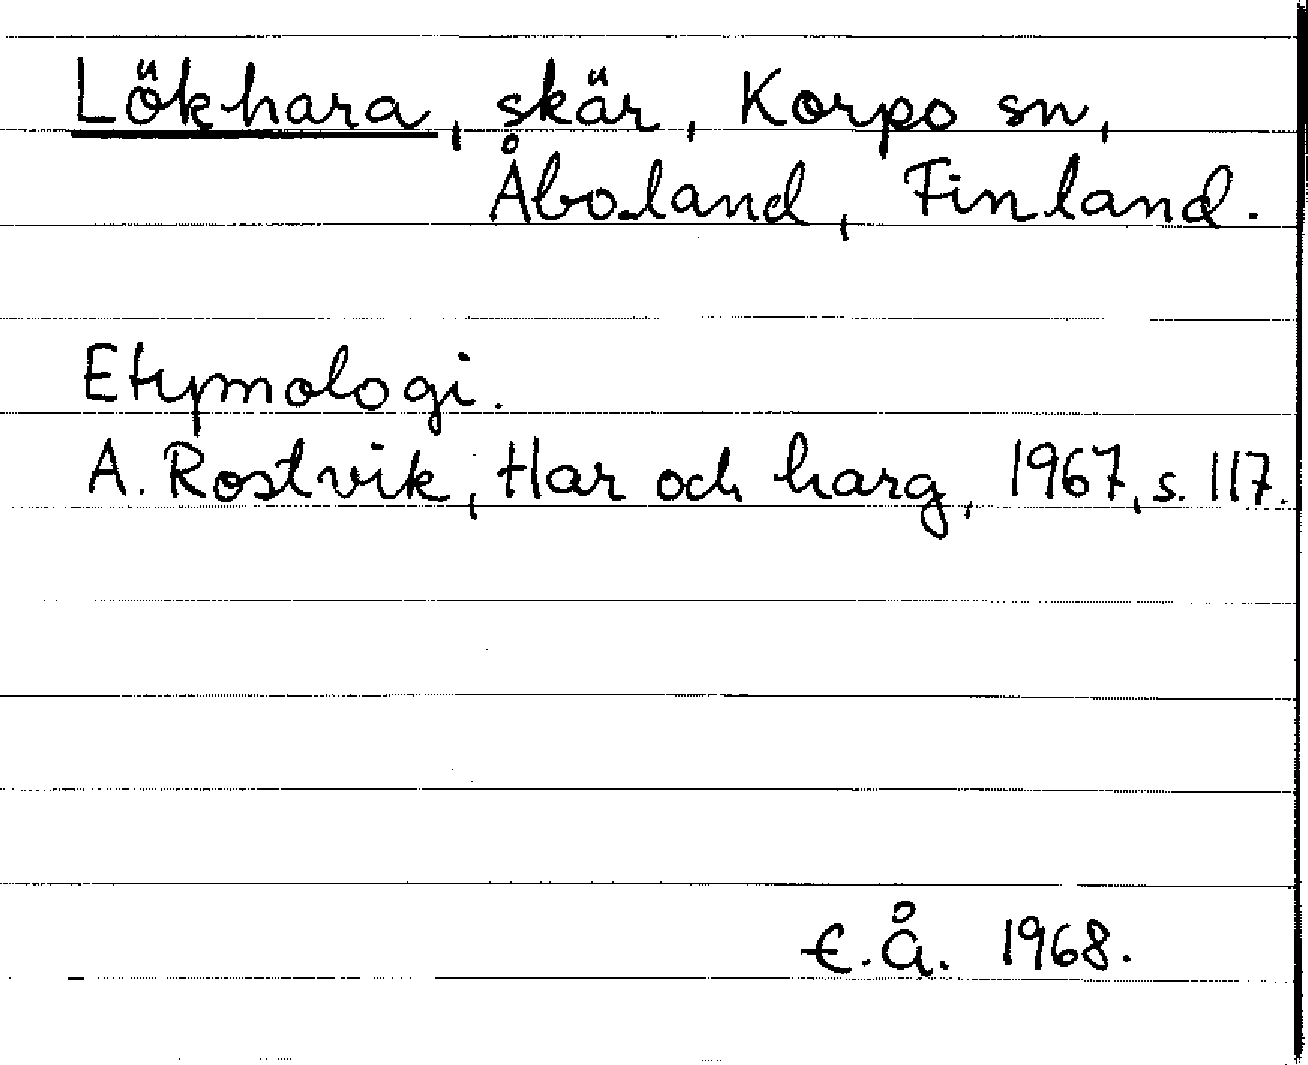 Lökhara, skär, Korpo sn,
Åboland, Finland.
Etymologi.
A. Rostvik, Har och harg, 1967, s. 117.
E.Å. 1968.